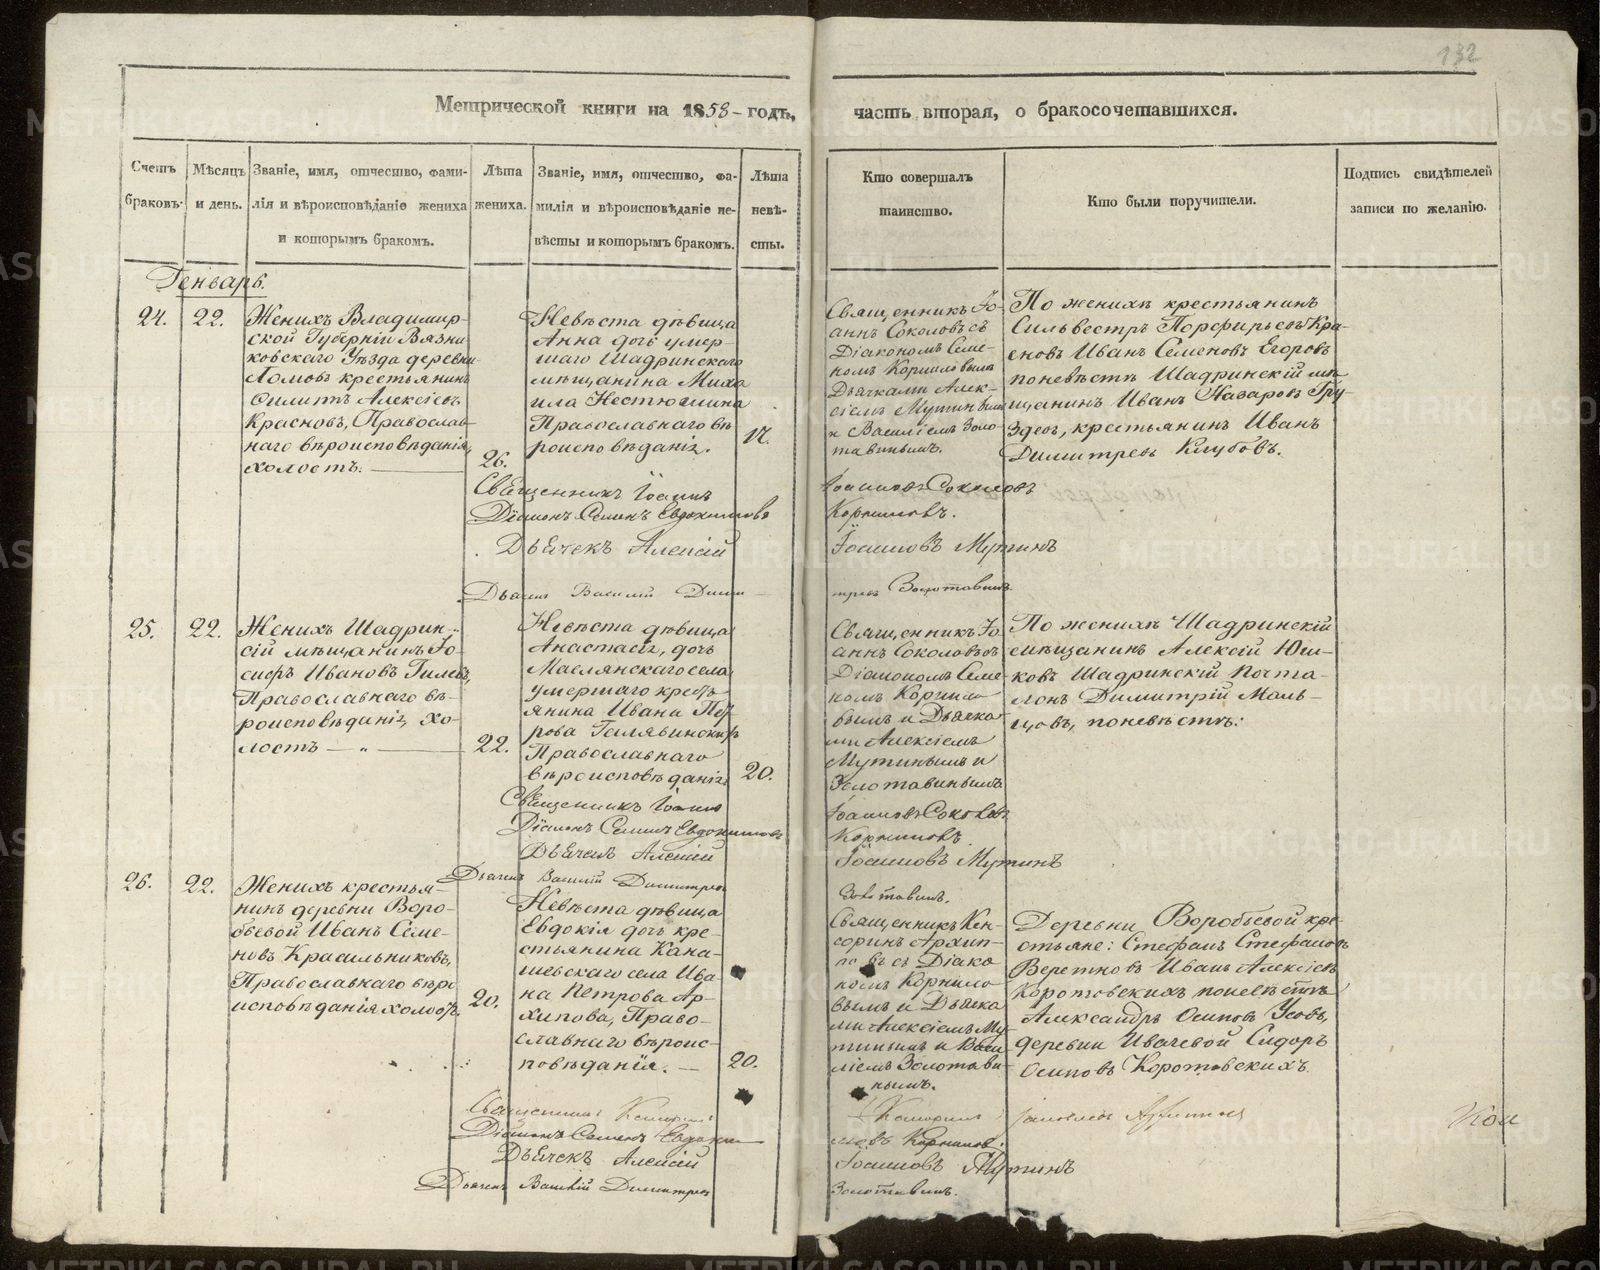 132
Метрической книги на 1858-годъ, часть вторая, о бракосочетавшихся.
Счетъ браковъ.
Мѣсяцъ и день.
Званіе, имя, отчество, фами-
лія и вѣроисповѣданіе жениха
и которымъ бракомъ.
Лѣта
жениха.
Званіе, имя, отчество, фа-
милія и вѣроисповѣданіе не-
вѣсты и которымъ бракомъ.
Лѣта
невѣ-
сты.
Кто совершалъ
таинство.
Кто были поручители.
Подпись свидѣтелей
записи по желанію.
Генварь.
24.
22.
Женихъ Владимир-
ской Губерніи Вязни-
ковскаго Уѣзда деревни
крестьянинъ
Алексіевъ
Красновъ, Православ-
наго вѣроисповѣданія,
холостъ.
26.
Невѣста дѣвица
Анна дочь умер-
шаго Шадринскаго
мѣщанина Миха
ила
Православнаго вѣ
роисповѣданія.
17.
Священникъ Іо-
аннъ Соколовъ съ
Діакономъ Семе-
номъ Корниловымъ
Дьячками Алек-
сіемъ Мутинымъ
и Василіемъ Золо-
тавинымъ.
По женихѣ крестьянинъ
Сильвестръ Порфирьевъ Кра-
сновъ Иванъ Семеновъ Егоровъ
по невѣстѣ Шадринскій мѣ-
щанинъ Иванъ Назаровъ Гру-
здевъ, крестьянинъ Иванъ
Димитріевъ Клубовъ.
Священникъ Іоаннъ Іоанновъ Соколовъ
Діаконъ Семенъ Евдокимовъ Корниловъ.
Дьячекъ Алексій Іоанновъ Мутинъ
Дьячекъ Василій Дими-
тріев Золотавинъ
25.
22.
Женихъ Шадрин-
скій мѣщанинъ Іо-
сифъ Ивановъ Гилевъ,
Православнаго вѣ-
роисповѣданія, хо-
лостъ
22.
Невѣста дѣвица
Анастасія, дочь
Маслянскаго села
умершаго кресть-
янина Ивана Пет
рова
Православнаго
вѣроисповѣданія
20.
Священникъ Іо-
аннъ Соколовъ съ
Діакономъ Семе-
номъ Корнило
вымъ и Дьячка
ми Алексіемъ
Мутинымъ и
Золотавинымъ
По женихѣ Шадринскій
мѣщанинъ Алексій Юш-
ковъ Шадринскій Почта-
ліонъ Димитрій Маль-
цовъ, по невѣстѣ:
Священникъ Іоаннъ Іоанновъ Соколовъ
Діаконъ Семенъ Евдокимовъ Корниловъ
Дьячекъ Алексій Іоанновъ Мутинъ
Дьячекъ Василій Димитріев Золотавинъ.
26.
22.
Женихъ крестья-
нинъ деревни Воро-
бьевой Иванъ Семе-
новъ Красильниковъ,
Православнаго вѣро
исповѣданія холостъ.
20.
Невѣста дѣвица
Евдокія дочь кре-
стьянина Кана-
шевскаго села Ива
на Петрова Ар-
хипова, Право-
славнаго вѣроис-
повѣданія.
20.
Священникъ Кен-
соринъ Архип-
повъ съ Діако
номъ Корнило
вымъ и Дьячка
ми Алексіемъ Му-
тинымъ и Васи
ліемъ Золотави-
нымъ.
Деревни Воробьевой кре-
стьяне: Стефанъ Стефановъ
Веретновъ Иванъ Алексіевъ
Коротовскихъ по невѣстѣ
Александръ Осиповъ Усовъ,
деревни Ивачевой Сидоръ
Осиповъ Коротовскихъ.
Священникъ
Діаконъ Семенъ Евдоки-
мовъ Корниловъ.
Дьячекъ Алексій Іоанновъ Мутинъ
Дьячекъ Василій Димитріев Золотавинъ.
METRIKI.GASO-URAL.RU